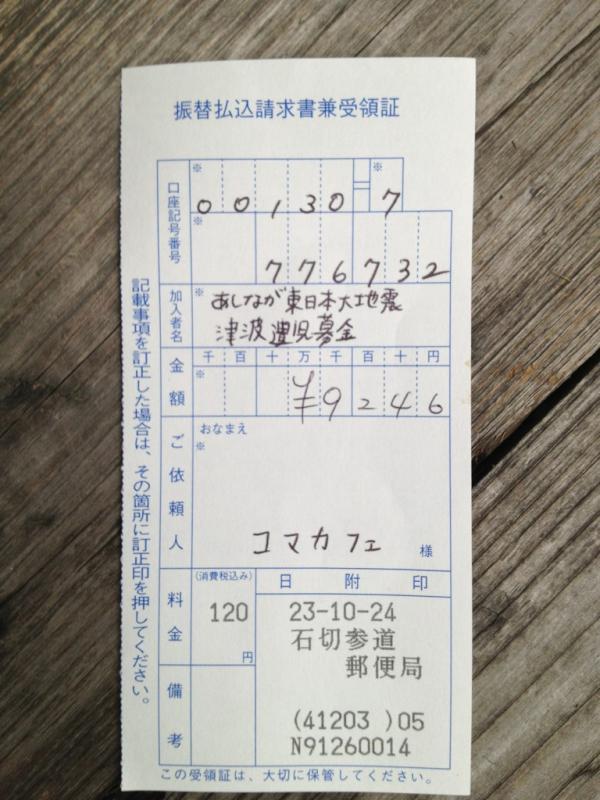 振替払込請求書兼受領証
口座記号番号
※
00130
※
7
※
776732
加入者名
※
あしなが東日本大地震
津波遺児募金
金額
千百十万千百十円
※
¥9246
ご依頼人
おなまえ
※
コマカフェ 様
料金
(消費税込み)
120
円
日附印
23-10-24
石切参道
郵便局
(41203 )05
N91260014
備考
記載事項を訂正した場合は、その箇所に訂正印を押してください。
この受領証は、大切に保管してください。